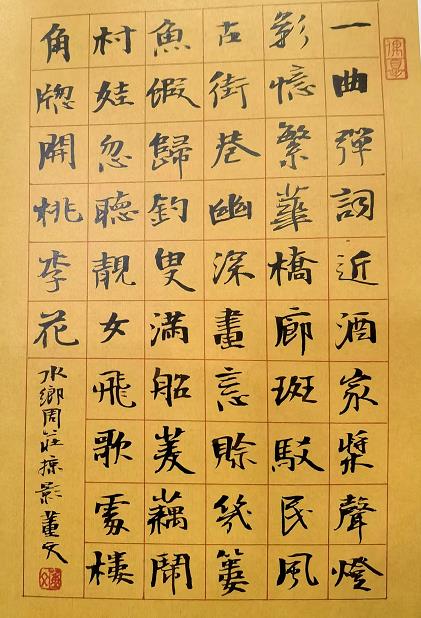 一曲彈詞近酒家槳聲燈
影憶繁華橋廊斑駁民風
古街巷幽深畫意賒幾簍
魚蝦歸釣叟滿船菱藕鬧
村娃忽聽靚女飛歌處樓
角牕開桃李花
水鄉周莊掠影董文